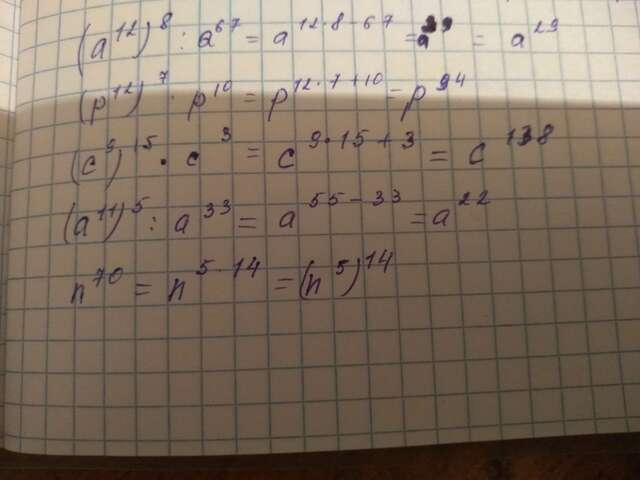 (a¹²)⁸ : a⁶⁷ = a¹²·⁸⁻⁶⁷ = a²⁹ = a²⁹
(p¹²)⁷ · p¹⁰ = p¹²·⁷⁺¹⁰ = p⁹⁴
(c⁹)¹⁵ · c³ = c⁹·¹⁵⁺³ = c¹³⁸
(a¹¹)⁵ : a³³ = a⁵⁵⁻³³ = a²²
n⁷⁰ = n⁵·¹⁴ = (n⁵)¹⁴